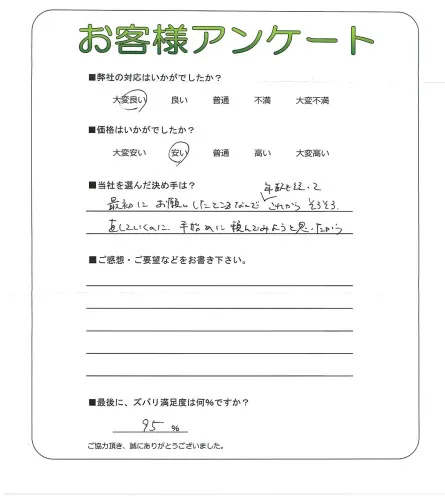 お客様アンケート
■弊社の対応はいかがでしたか？
大変良い 良い 普通 不満 大変不満
■価格はいかがでしたか？
大変安い 安い 普通 高い 大変高い
■当社を選んだ決め手は？
年数も経って
最初に お願いしたところなんで これから そろそろ
直していくのに 手始めに 頼んでみようと思ったから
■ご感想・ご要望などをお書き下さい。
■最後に、ズバリ満足度は何％ですか？
95 %
ご協力頂き、誠にありがとうございました。